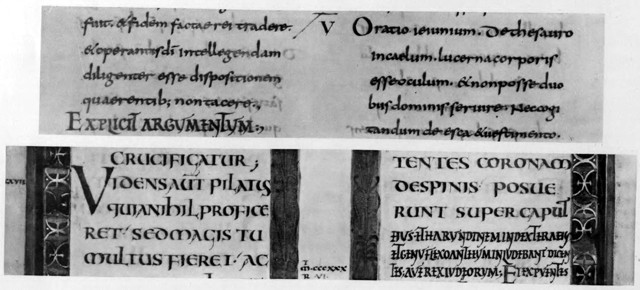 fuit. & fidem factae rei tradere.
& operantis di intellegendam
diligenter esse dispositionem
quaerentib; non tacere.
EXPLICIT ARGUMENTUM:,
V Oratio ieiunium. De thesauro
in caelum. lucerna corporis
esse oculum. & non posse duo
bus dominis seruire. Necogi
tandum de esca & uestimento.
CRUCIFIGATUR;
VIDENS AUT PILATUS
QUIA NIHIL PROFICE
RET. SED MAGIS TU
MULTUS FIERET. AC
TENTES CORONAM
DE SPINIS POSUE
RUNT SUPER CAPUT
EIUS ET HARUNDINEM IN DEXTERA EIUS
ET GENU FLEXO ANTE INLUDEBANT DICEN
TES AUE REX IUDEORUM; ET EXPUENTES